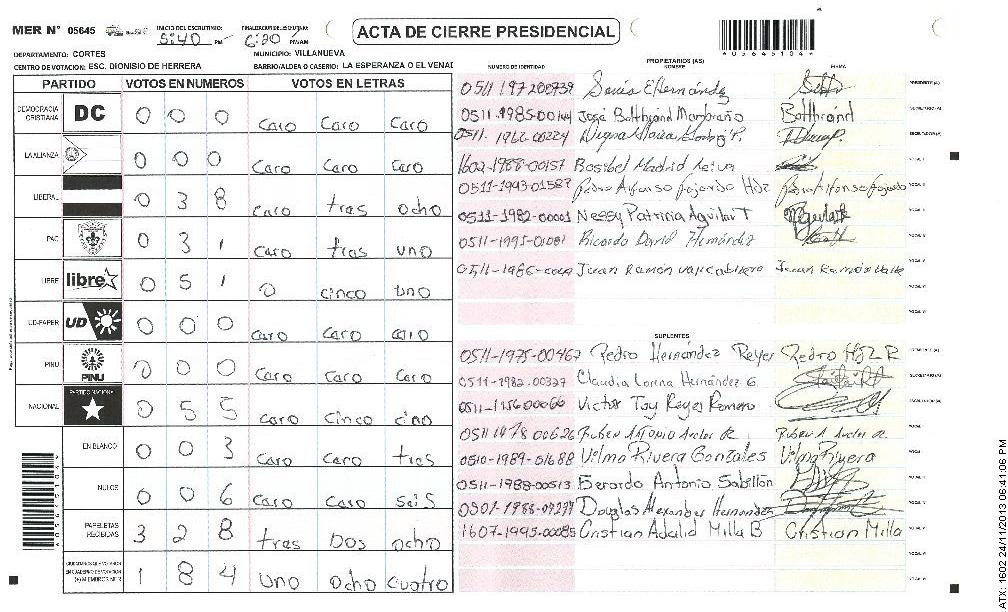 MER N° 05645
INICIO DEL ESCRUTINIO: 5:40 PM
FINALIZACION DEL ESCRUTINIO: 6:20 PM/AM
ACTA DE CIERRE PRESIDENCIAL
*05645104*
DEPARTAMENTO: CORTES
MUNICIPIO: VILLANUEVA
CENTRO DE VOTACION: ESC. DIONISIO DE HERRERA
BARRIO/ALDEA O CASERIO: LA ESPERANZA O EL VENAI
PARTIDO VOTOS EN NUMEROS VOTOS EN LETRAS
DEMOCRACIA CRISTIANA DC 0 0 0 Caro Caro Caro
LA ALIANZA 0 0 0 Caro Caro Caro
LIBERAL 0 3 8 Caro tras ocho
PAC 0 3 1 Caro tras uno
LIBRE libre 0 5 1 0 cinco uno
UD-FAPER UD 0 0 0 Caro Caro Caro
PINU PINU 0 0 0 Caro Caro Caro
NACIONAL PARTIDO NACIONAL 0 5 5 Caro Cinco cino
EN BLANCO 0 0 3 Caro Caro tres
NULOS 0 0 6 Caro Caro seis
PAPELETAS RECIBIDAS 3 2 8 tras Dos ocho
CIUDADANOS QUE VOTARON EN CUADERNO DE VOTACION (+) MIEMBROS MER 1 8 4 Uno ocho cuatro
PROPIETARIOS (AS)
NUMERO DE IDENTIDAD NOMBRE FIRMA
0511 197200939 Sonia E Hernández
0511-1985-00144 José Balthrand Bathrand
0511-1962-00224
1602-1988-00157 Bosibel Madrid
0511-1993-01587 Pedro Alfonso Fajardo Hdz Pedro Alfonso Fajardo
0511-1982-00001 Nessy Patricia Aguilar T
0511-1995-01081 Ricardo David Hernández
Juan Ramón Juan Ramón Valle
SUPLENTES
0511-1975-00467 Pedro Hernández Reyes Pedro HDZ R
0511-1982-00327 Claudia Lorena Hernández G.
Victor Toy Reyes Romero
0511 1978 00626 Ruben Antonio
0510-1989-01688 Vilma Rivera Gonzales Vilma Rivera
0511-1988-00513 Gerardo Antonio Sabillón
Douglas Alexander Hernandez
1607-1995-00085 Cristian Adalid Milla B Cristian Milla
ATX: 1602 24/11/2013 06:41:06 PM